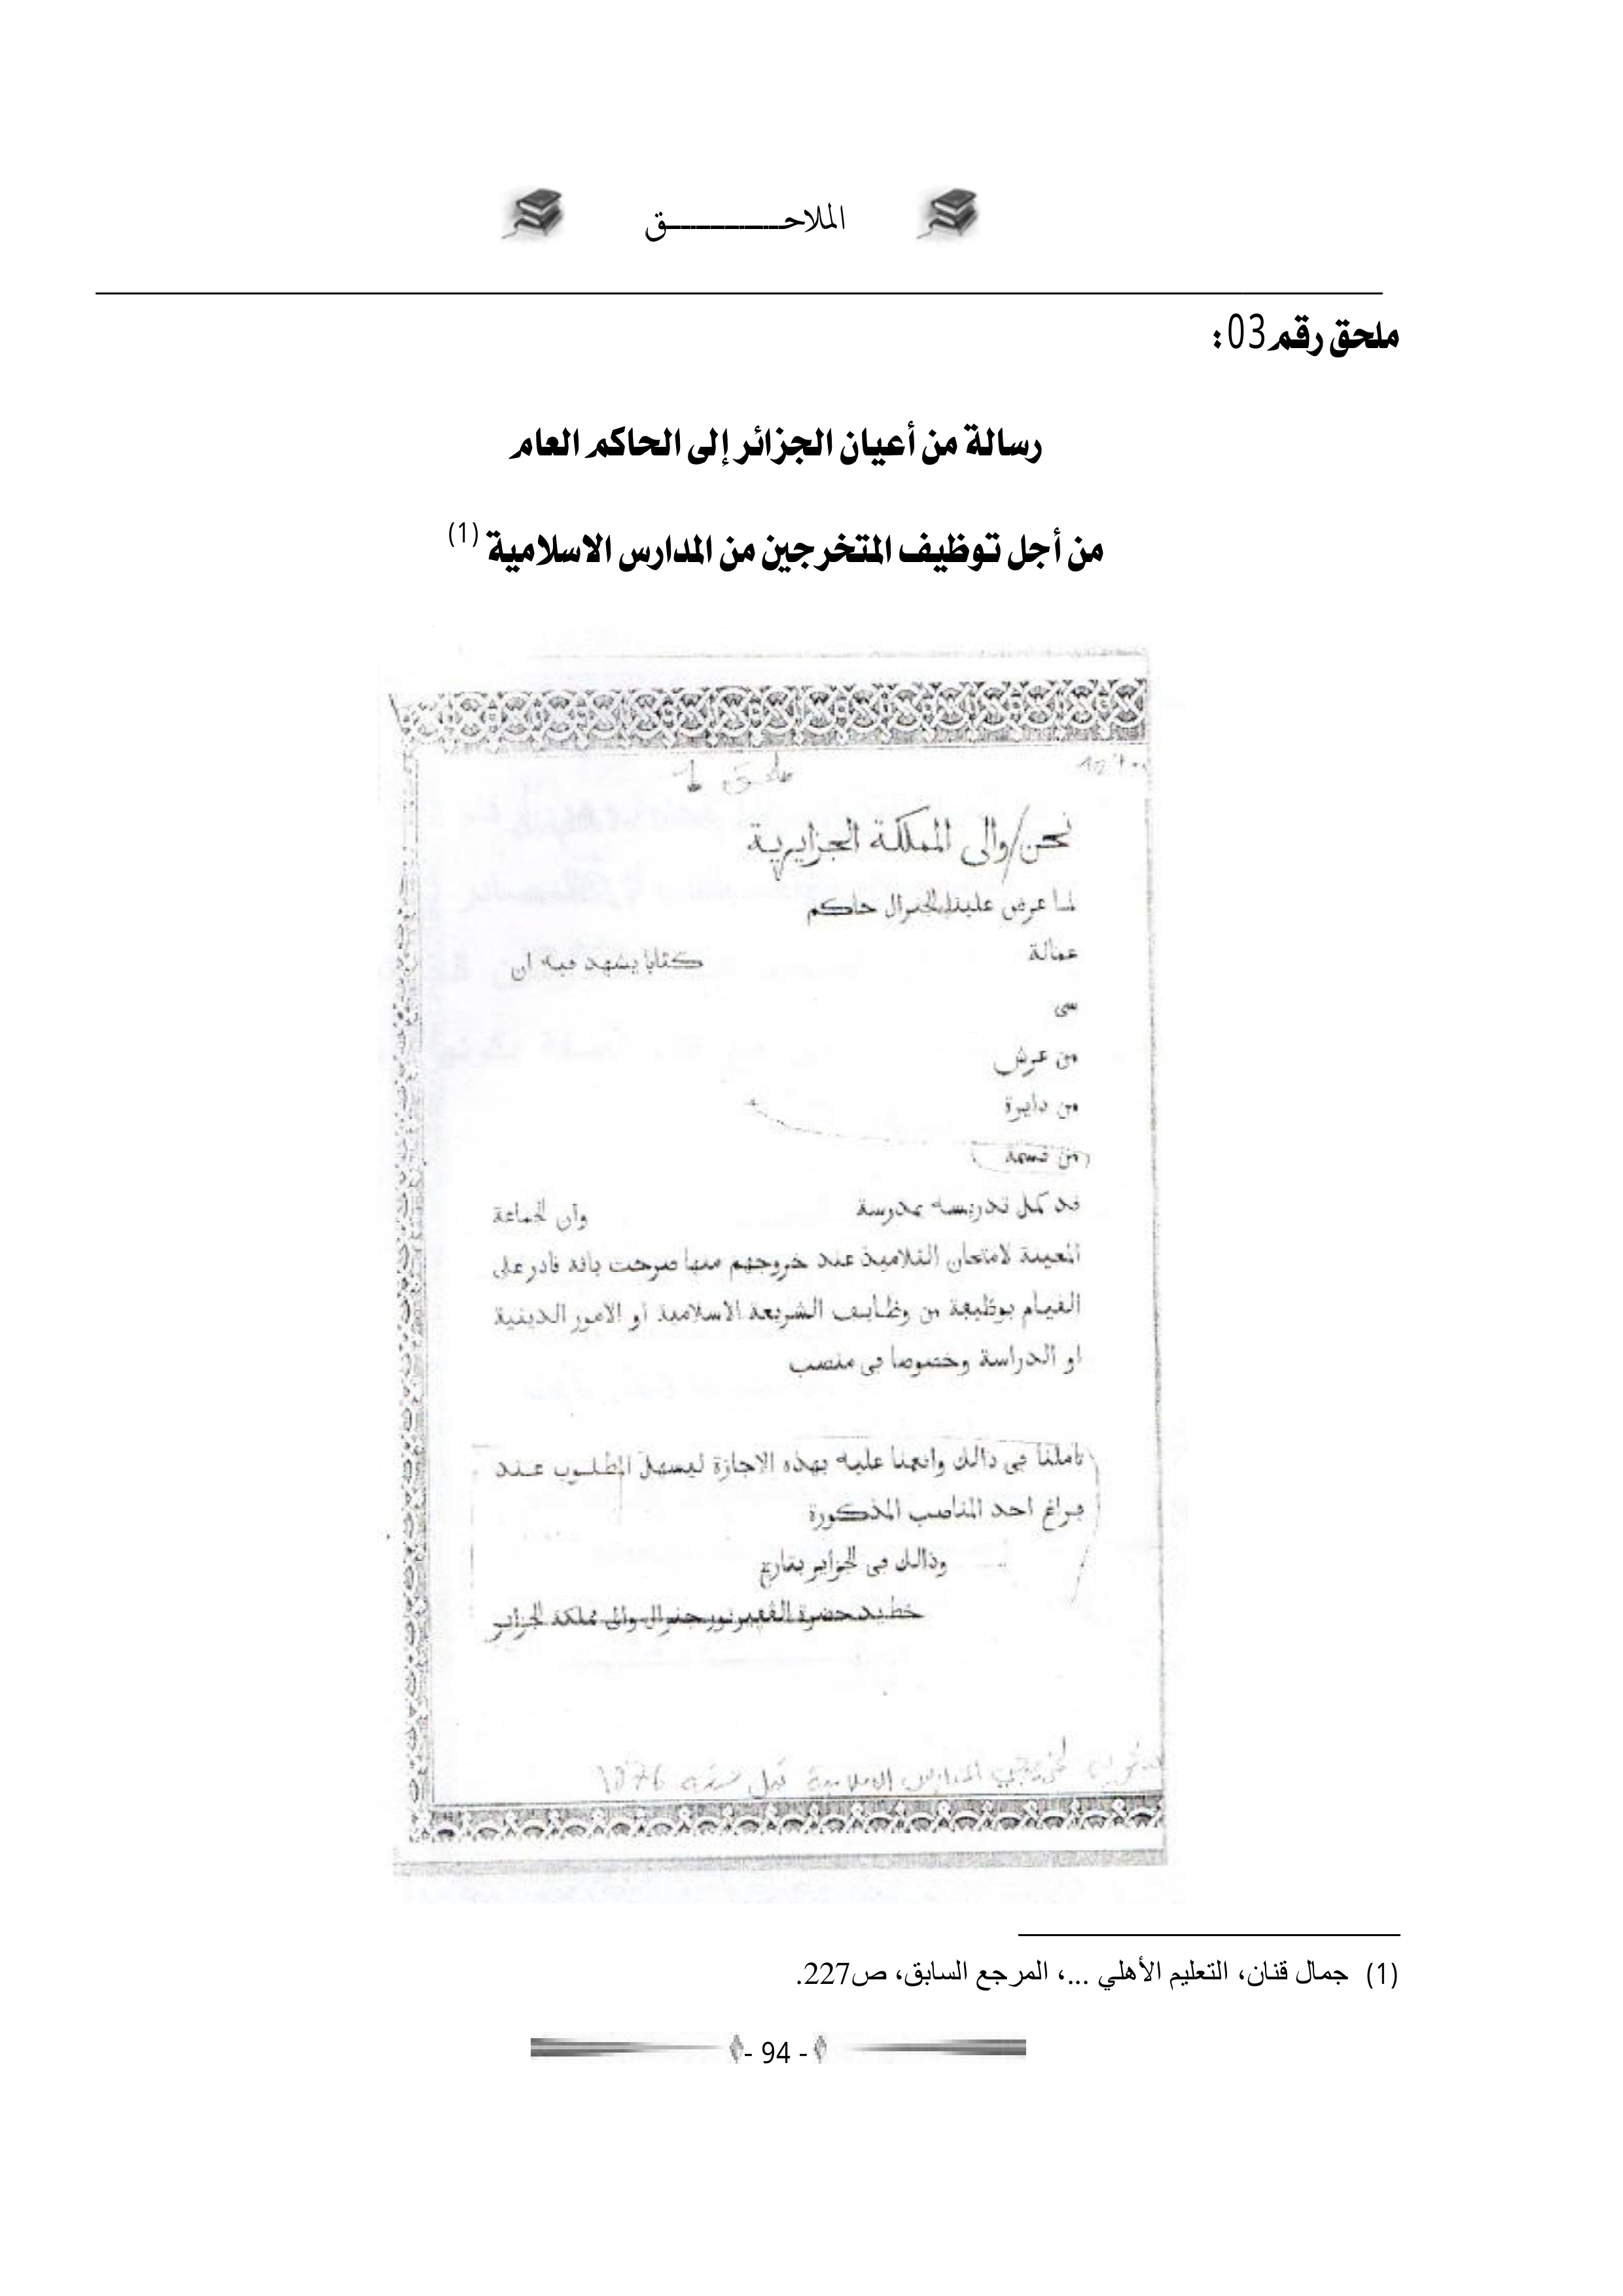 الملاحـــــــــــــــق
ملحق رقم 03:
رسالة من أعيان الجزائر إلى الحاكم العام
من أجل توظيف المتخرجين من المدارس الاسلامية (1)
ملحق 1
نحن/والى المملكة الجزايرية
لما عرض علينا الجنرال حاكم
عمالة كتابا يشهد فيه ان
سى
من عرش
من دايرة
من قسمة
قد كمل تدريسه بمدرسة وان الجماعة
المعينة لامتحان التلاميذ عند خروجهم منها صرحت بانه قادر على
القيام بوظيفة من وظايف الشريعة الاسلامية او الامور الدينية
او الدراسة وخصوصا فى منصب
تاملنا فى ذالك وانعمنا عليه بهذه الاجازة ليسهل المطلوب عند
فراغ احد المناصب المذكورة
وذالك فى الجزاير بتاريخ
خط يد حضرة الڨبيرنور جنرال والى مملكة الجزاير
لخريجي المدارس الاسلامية قبل سنة 1876
(1) جمال قنان، التعليم الأهلي ...، المرجع السابق، ص227.
- 94 -